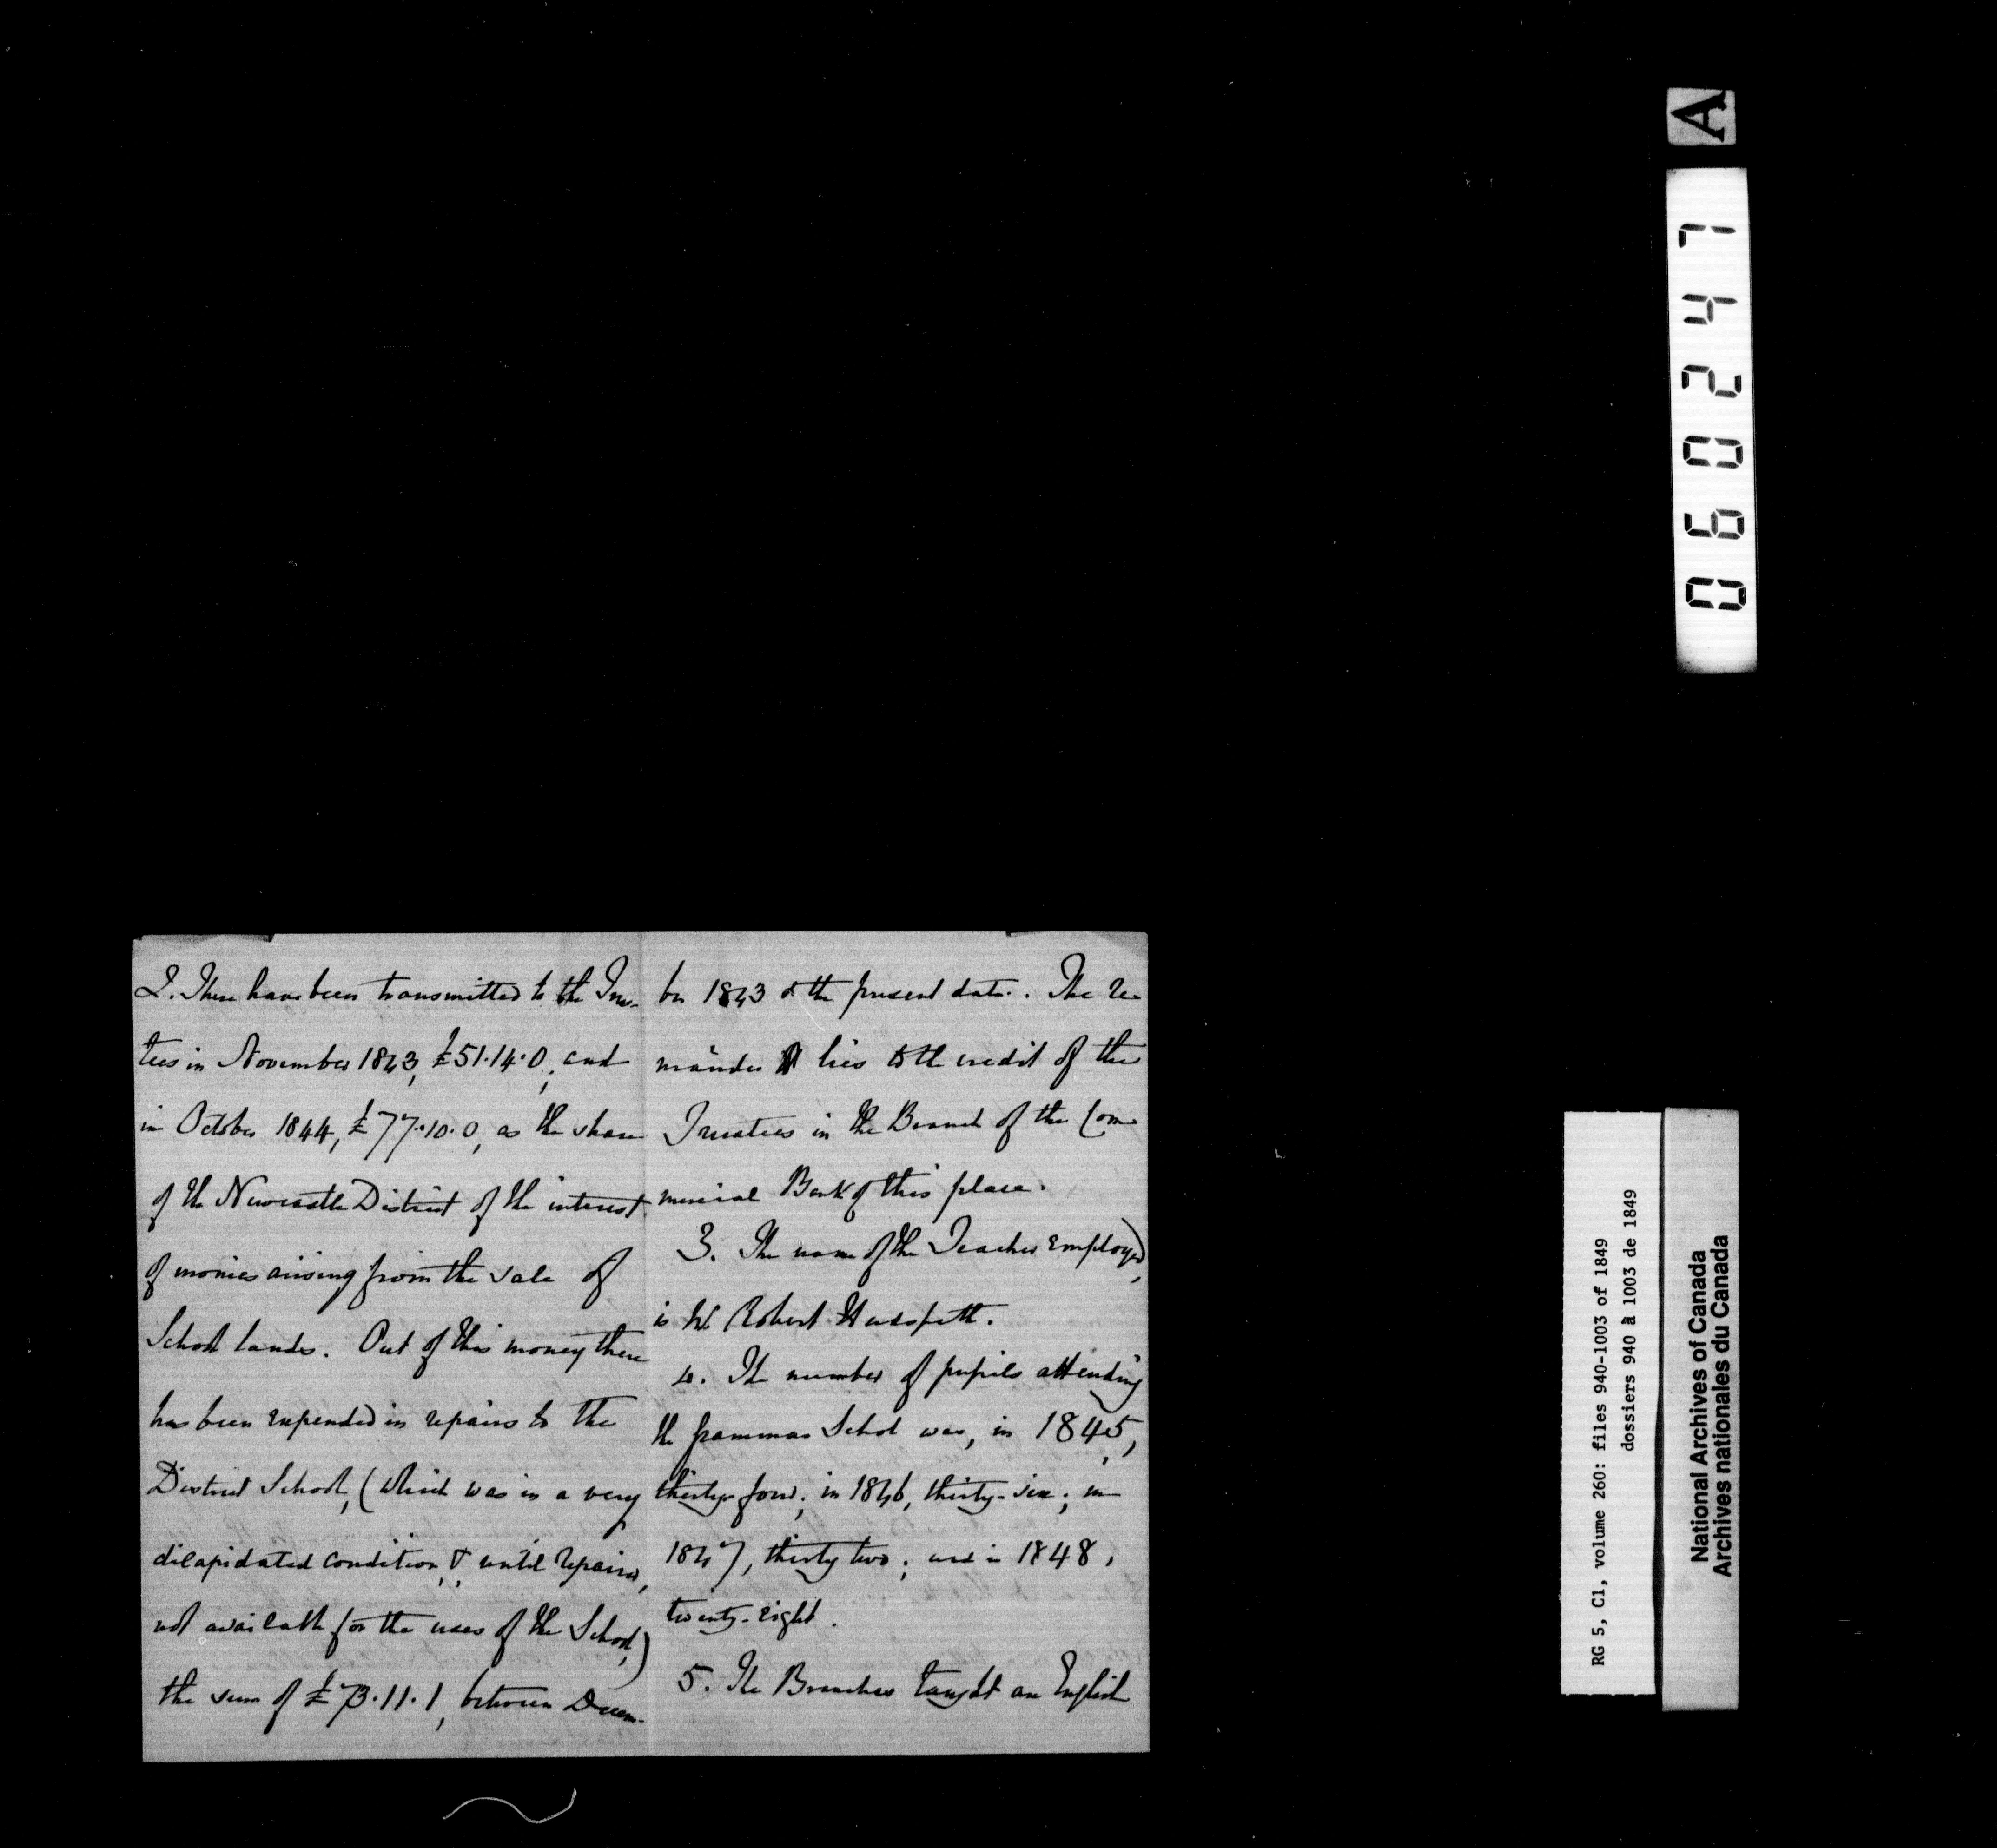 2. There have been transmitted to the Trus-
tees in November 1843, £51.14.0; and
in October 1844, £77.10.0, as the share
of the Newcastle District of the interest
of monies arising from the sale of
School lands. Out of this money there
has been expended in repairs to the
District School, (which was in a very
dilapidated condition, & until repaired,
not available for the uses of the School,)
the sum of £73.11.1, between Decem-
ber 1843 & the present date. The re-
mainder lies to the credit of the
Trustees in the Branch of the Com-
mercial Bank of this place.
3. The name of the Teacher employed,
is Mr Robert Hudspeth.
4. The number of pupils attending
the Grammar School was, in 1845,
thirty-four; in 1846, thirty-six; in
1847, thirty two; and in 1848,
twenty-eight.
5. The Branches taught are English
A
060247
RG 5, C1, volume 260: files 940-1003 of 1849
dossiers 940 à 1003 de 1849
National Archives of Canada
Archives nationales du Canada